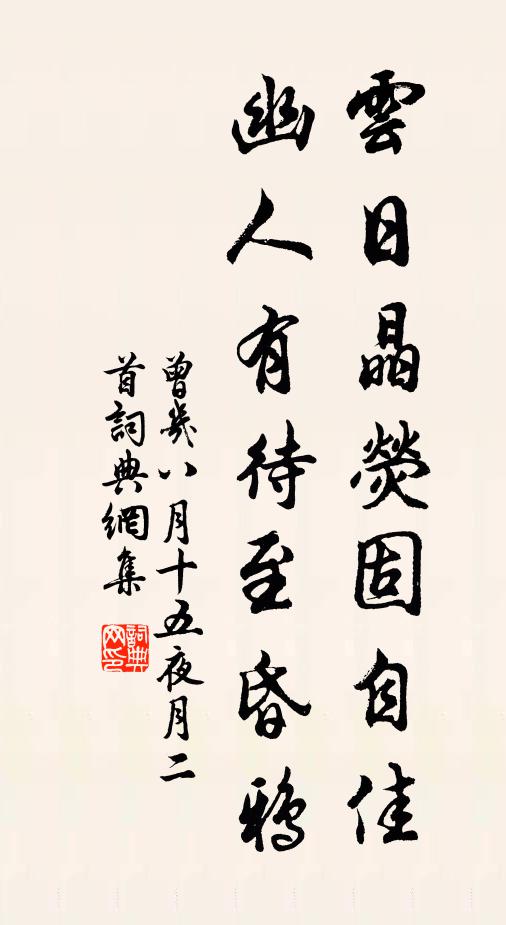 雲日晶熒固自佳
幽人有待至昏鴉
曾幾八月十五夜月二
首詞典網集
詞典
网印